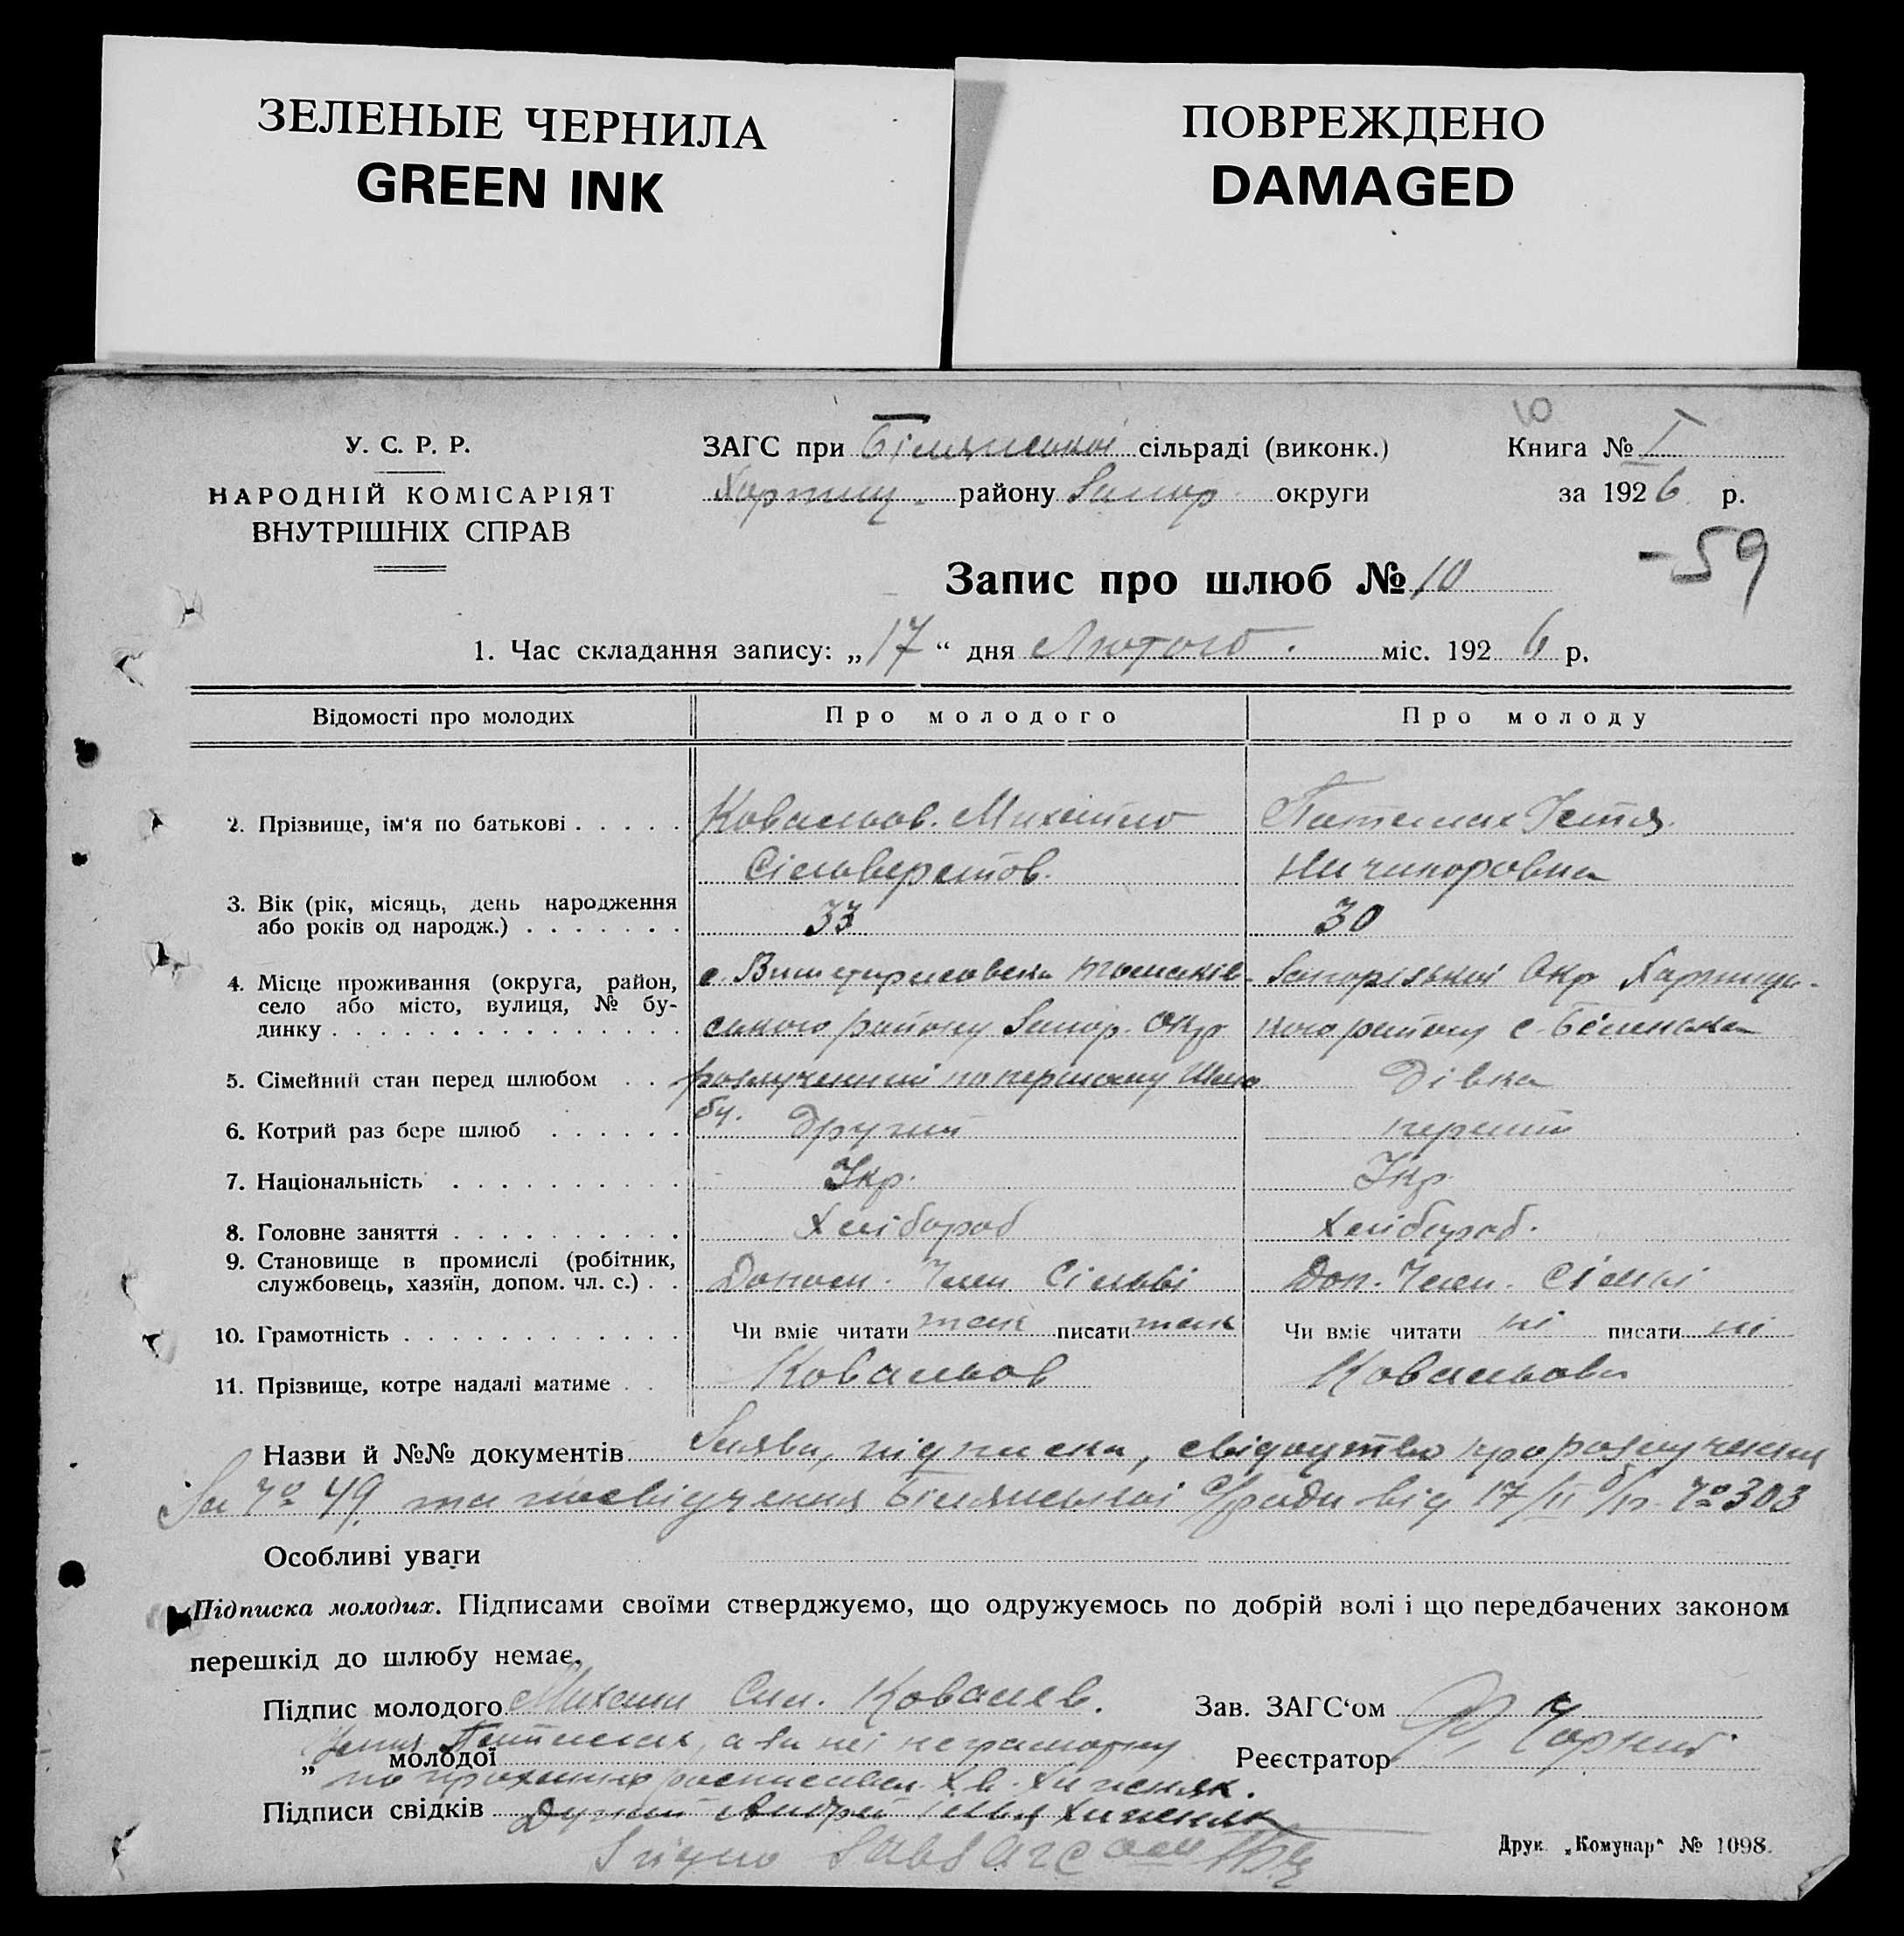 ЗЕЛЕНЫЕ ЧЕРНИЛА
GREEN INK
ПОВРЕЖДЕНО
DAMAGED
10
У. С. Р. Р.
НАРОДНІЙ КОМІСАРІЯТ
ВНУТРІШНІХ СПРАВ
ЗАГС при Білянської сільраді (виконк.)
Хортиц. району Запор. округи
Книга № I
за 1926 р.
-59
Запис про шлюб № 10
1. Час складання запису: „17“ дня Лютого. міс. 1926 р.
Відомості про молодих
Про молодого
Про молоду
2. Прізвище, ім'я по батькові
Ковальов. Михайло
Сільверстов.
Ничипоровна
3. Вік (рік, місяць, день народження
або років од народж.)
33
30
4. Місце проживання (округа, район,
село або місто, вулиця, № бу-
динку
с. Томаків-
ського району Запор. Окр
Запорізької Окр Хортиць-
кого району с. Біленька
5. Сімейний стан перед шлюбом
розлучений по першому Шлю
бу.
Дівка
6. Котрий раз бере шлюб
Другий
перший
7. Національність
Укр.
Укр.
8. Головне заняття
Хлібороб
Хлібороб.
9. Становище в промислі (робітник,
службовець, хазяїн, допом. чл. с.)
Допом. Член Сільві
Доп. Член. Сімьі
10. Грамотність
Чи вміє читати так писати так
Чи вміє читати ні писати ні
11. Прізвище, котре надалі матиме
Ковальов
Ковальова
Назви й №№ документів Заява, підписка, свідоцтво про розлучення
За № 49. та посвідчення Білянської с/ради від 17/II б/р. № 303
Особливі уваги
Підписка молодих. Підписами своїми стверджуємо, що одружуємось по добрій волі і що передбачених законом
перешкід до шлюбу немає.
Підпис молодого Михаил Сил. Ковалев.
Зав. ЗАГС'ом
„ молодої а за неї неграмотну
по проханню росписався Хв.
Реєстратор
Підписи свідків Андрей
Згідно Завзагсом
Друк „Комунар“ № 1098.